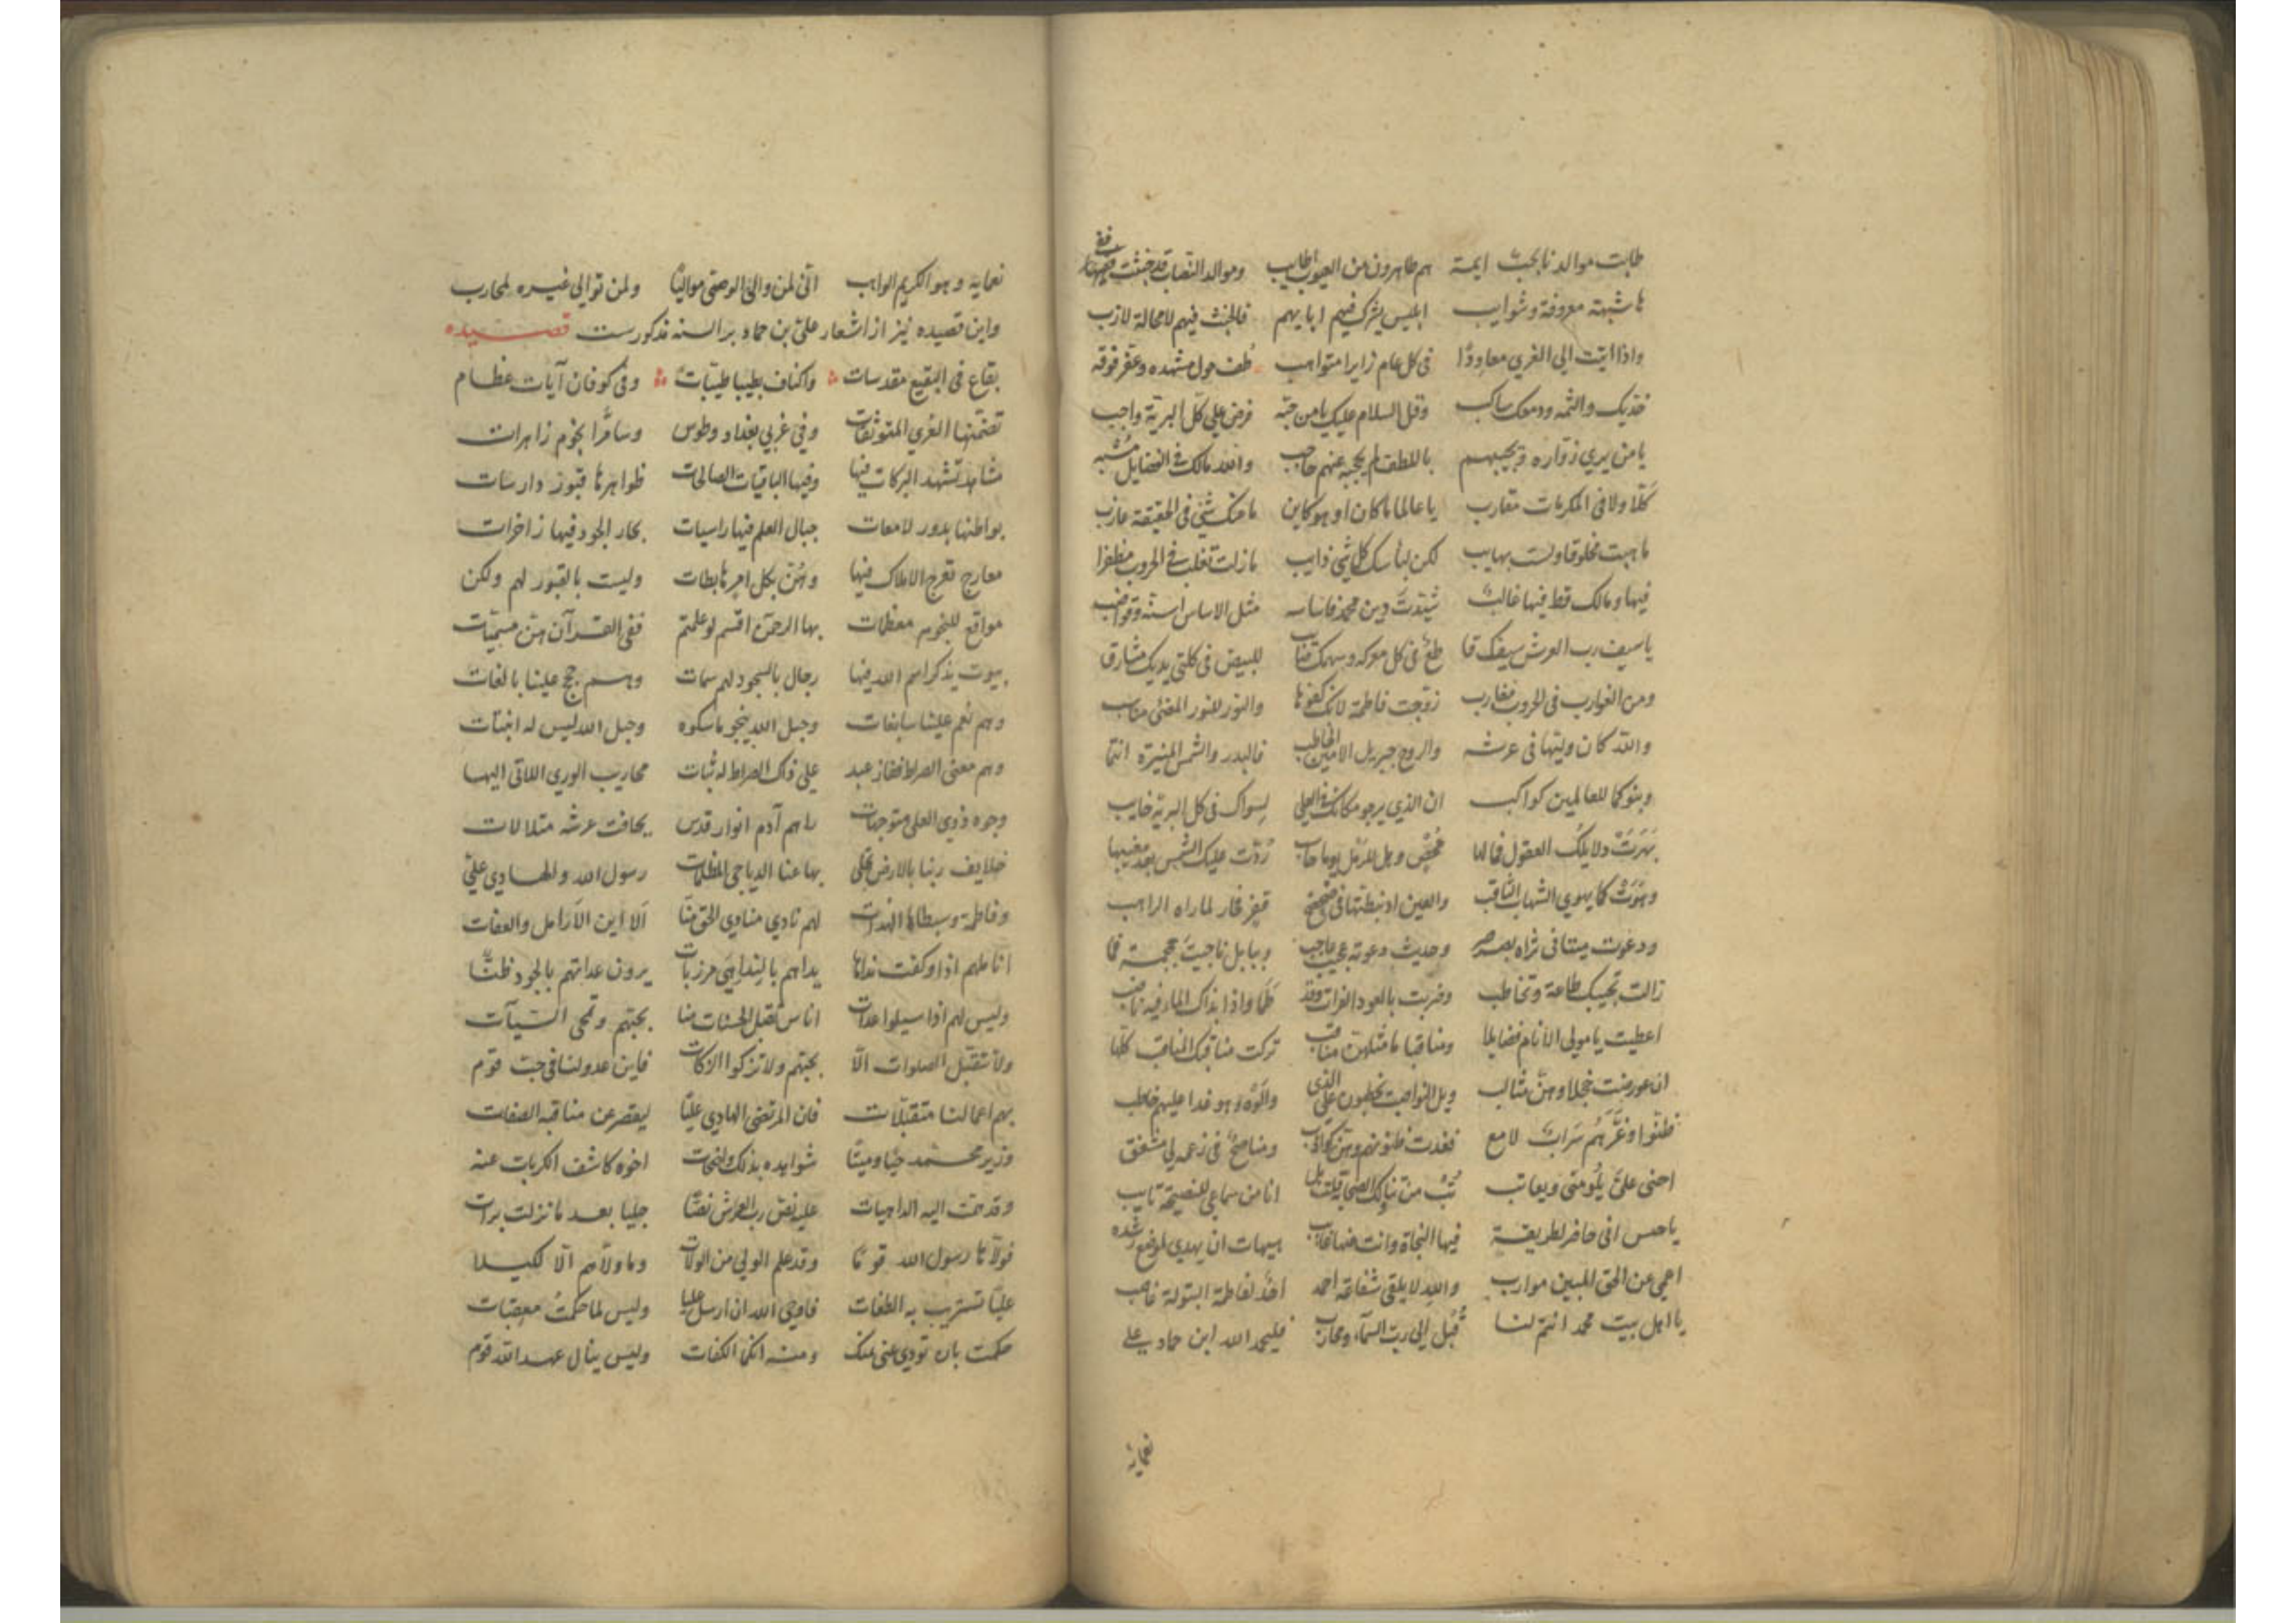 طابت موالدنا بحبّ ایمة هم طاهرون من العیوب اطایب وموالد النصاب قد خبثت ففیها
ها شبهة معروفة وشوایب ابلیس یشرک فیهم اباءیهم فالخبث فیهم لامحالة لازب
واذا اتیت الی الغری معاودًا فی کل عام زایرا متواهب طف حول مشهده وعفر فوقه
خدیک والثمه ودمعک ساکب وقل السلام علیک یا من حبّه فرض علی کلّ البریّة واجب
یا من یری زوّاره ویجیبهم باللطف لم یحجبه عنهم حاجب والله مالک فی الفضایل مُشبه
کلّا ولا فی المکرمات مقارب یا عالما ما کان او هو کاین ما عنک شیٔ فی الحقیقة عازب
ما هبت مخلوقا ولست بهایب لکن لبأسک کل شیٔ ذایب ما زلت تغلب فی الحروب مظفرا
فیها ومالک قط فیها غالبٌ شیّدتَ دین محمد فاساسه مثل الاساس اسنّة وقواضب
یا سیف رب العرش سیفک قا طعٌ فی کل معرکه وسهمک صائب للبیض فی کلتی یدیک مشارق
ومن الغوارب فی الحروب مغارب زوّجت فاطمة لانک کفوها والنور للنور المضئی مناسب
والله کان ولیّها فی عرشه والروح جبریل الامین الخاطب فالبدر والشمس المنیرة انتما
وبنوکما للعالمین کواکب ان الذی یرجو مکانک فی العلی لسواک فی کل البریّة خایب
بهَرَتْ دلایلُک العقول فما لها مُحصٍ وهل للرمل یوما حاسب رُدّت علیک الشمس بعد مغیبها
وهَوَتْ کما یهوی الشهاب الثاقب والعین اذ نبطتها فی صحصح قفر فحار لما راه الراهب
ودعوت میتا فی ثراه بصرصر وحدیث دعوته عجیب عاجب وببابل ناجیتَ جمجمة فما
زالت تجیبک طاعة وتخاطب وضربت بالعود الفرات وقد طَمَا واذا بذاک الماء فیه ناضب
اعطیت یا مولی الأنام فضایلا ومناقبا ما مثلهنّ مناقب ترکت مناقبک المناقب کلّها
ان عورضت خجلا وهنّ مثالب ویل النواصب یخطبون علی الذی والَوْه وهو غدا علیهم خاطب
ظنّوا وغَرَّهُم سَرابٌ لامع فغدت ظنونهم وهن کواذب ومناصحٌ فی زعمه لی مشفق
اضحی علیّ یلومنی ویعاتب تُب من سبابک للصحابة قلت بل انا من سماعی للنصیحة تایب
یا حسن انی حافر لطریقة فیها النجاة وانت عنها غایب هیهات ان یهدی لموضع رشده
اعمی عن الحق المبین موارب والله لا یلقی شفاعة احمد احدٌ لفاطمة البتولة غاصب
یا اهل بیت محمد انتم لنا قُبُل الی رب السمآء ومحارب فلیحمد الله ابن حماد علی
نعمایه
نعمایه وهو الکریم الواهب انّی لمن والی الوصیّ موالیًا ولمن توالی غیره لمحارب
واین قصیده نیز از اشعار علی بن حماد بر السنه مذکورست قصیده
بقاع فی البقیع مقدسات واکناف بطیبا طیّبات وفی کوفان آیات عظام
تضمّنها الغری المتوثقات وفی غربی بغداد وطوس وسامرّا نجوم زاهرات
مشاهد تشهد البرکات فیها وفیها الباقیات الصالحات ظواهرها قبورٌ دارسات
بواطنها بدور لامعات جبال العلم فیها راسیات بحار الجود فیها زاخرات
معارج تعرج الاملاک فیها وهُنّ بکل امر هابطات ولیست بالقبور لهم ولکن
مواقع للنجوم معظمات بها الرحمن اقسم لو علمتم ففی القرآن هنّ مسمیّات
بیوت یذکر اسم الله فیها رجال بالسجود لهم سمات وهم حجج علینا بالغات
وهم نعم علینا سابغات وحبل الله ینجو ماسکوه وحبل الله لیس له انبتات
وهم معنی الصراط ففاز عبد علی ذاک الصراط له ثبات محاریب الوری اللاتی الیها
وجوه ذوی العلی متوجهات براهم آدم انوار قدس بحافت عرشه متلالات
خلایف ربنا بالارض تجلی بها عنا الدیاجی المظلمات رسول الله والهادی علیّ
وفاطمة وسبطاها الهداة لهم نادی منادی الحق منّا اَلا این الاَرامل والعفات
اناملهم اذا وکفت نداها یداهم بالندا هی مرزبات یرون عداتهم بالجود ظنًّا
ولیس لهم اذا سیلوا عدات اناس تقبل الحسنات منا بحبّهم وتمحی السّیآت
ولا تتقبّل الصلوات الّا بحبّهم ولا تزکوا الزکات فاین عدولنا فی حبّ قوم
بهم اعمالنا متقبّلات فان المرتضی الهادی علیّا لیقصر عن مناقبه الصفات
وزیر محمد حیًّا ومیتًا شواهده بذلک واضحات اخوه کاشف الکربات عنه
وقد همّت الیه الداهیات علیه نصّ ربّ العرش نصًّا جلیا بعد ما نزلت براة
فولّاها رسول الله قومًا وقد علم الولی من الولات وما ولّاهم الّا لکیلا
علیّا تستریب به الطغات فاوحی الله ان ارسل علیا ولیس لما حکمتُ معقبات
حکمت بان تودی عنی عنک ومنه انکما الکفات ولیس ینال عهد الله قوم